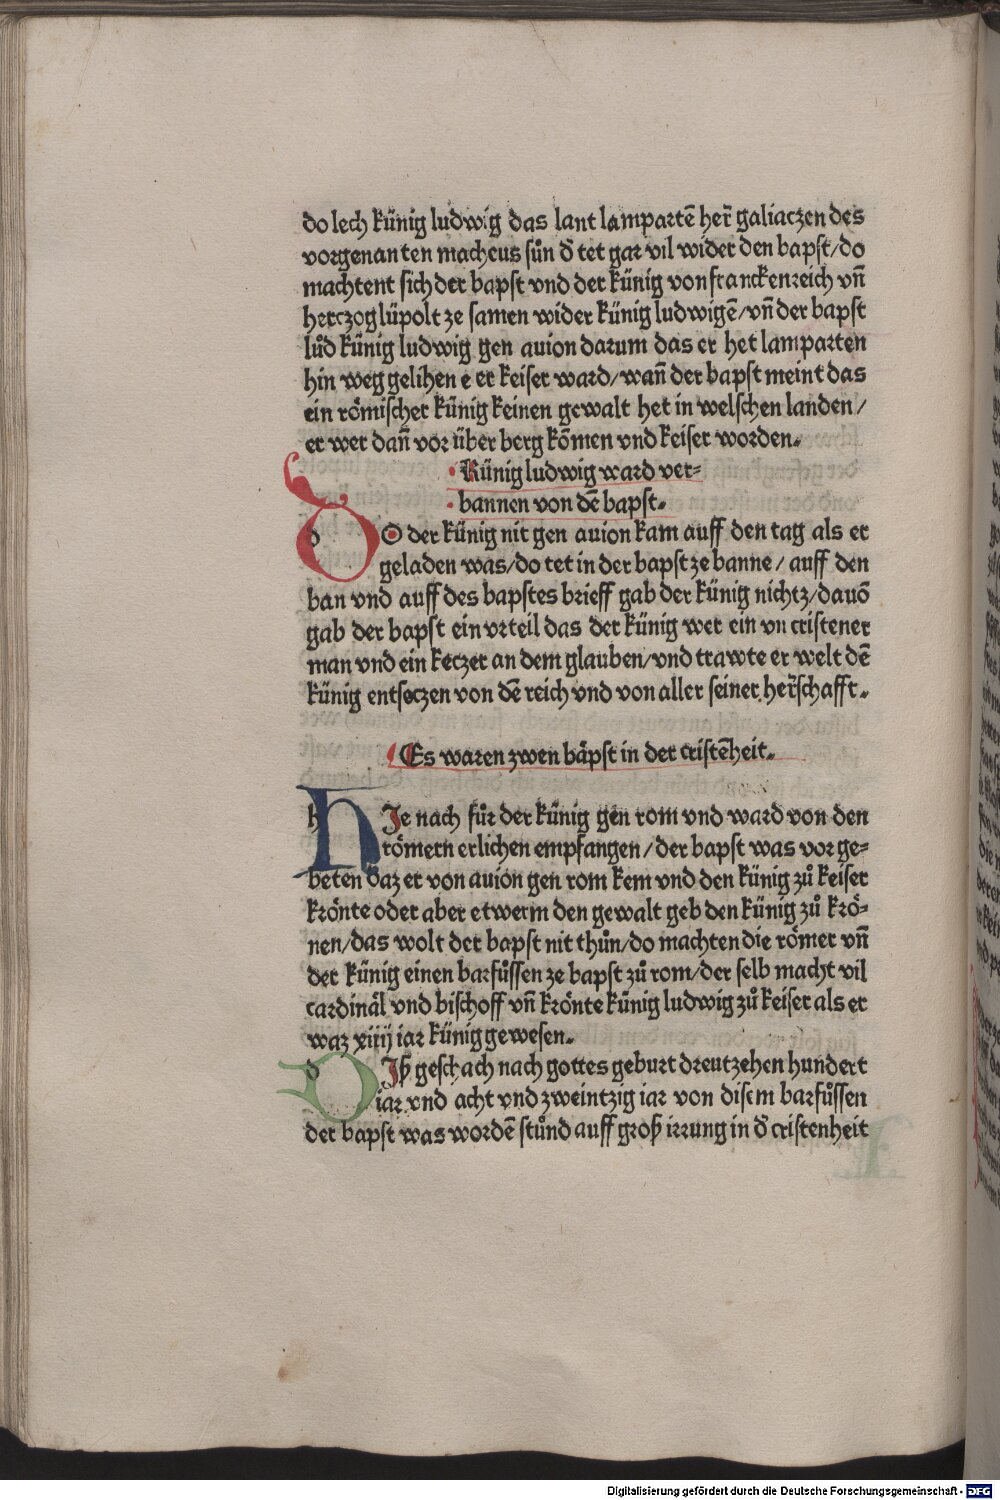 do lech künig ludwig das lant lampartē her̄ galiaczen des
vorgenanten macheus sůn d̄ tet gar vil wider den bapst/do
machtent sich der bapst vnd der künig von franckenreich vn̄
herczog lüpolt ze samen wider künig ludwigē/vn̄ der bapst
lůd künig ludwig gen auion darum das er het lamparten
hin weg gelihen e er keiser ward/wan̄ der bapst meint das
ein römischer künig keinen gewalt het in welschen landen/
er wer dan̄ vor über berg kōmen vnd keiser worden.
Künig ludwig ward ver-
bannen von dē bapst.
DO der künig nit gen auion kam auff den tag als er
geladen was/do tet in der bapst ze banne/auff den
ban vnd auff des bapstes brieff gab der künig nichtz/dauō
gab der bapst ein vrteil das der künig wer ein vn cristener
man vnd ein keczer an dem glauben/vnd trawte er welt dē
künig entseczen von dē reich vnd von aller seiner her̄schafft.
Es waren zwen bäpst in der cristēheit.
HIe nach fůr der künig gen rom vnd ward von den
römern erlichen empfangen/der bapst was vor ge-
beten daz er von auion gen rom kem vnd den künig zů keiser
krönte oder aber etwerm den gewalt geb den künig zů krö-
nen/das wolt der bapst nit thůn/do machten die römer vn̄
der künig einen barfůssen ze bapst zů rom/der selb macht vil
cardinäl vnd bischoff vn̄ krönte künig ludwig zů keiser als er
waz xiiij iar künig gewesen.
DIß geschach nach gottes geburt dreutzehen hundert
iar vnd acht vnd zweintzig iar von disem barfůssen
der bapst was wordē stůnd auff groß irrung in d̄ cristenheit
Digitalisierung gefördert durch die Deutsche Forschungsgemeinschaft - DFG